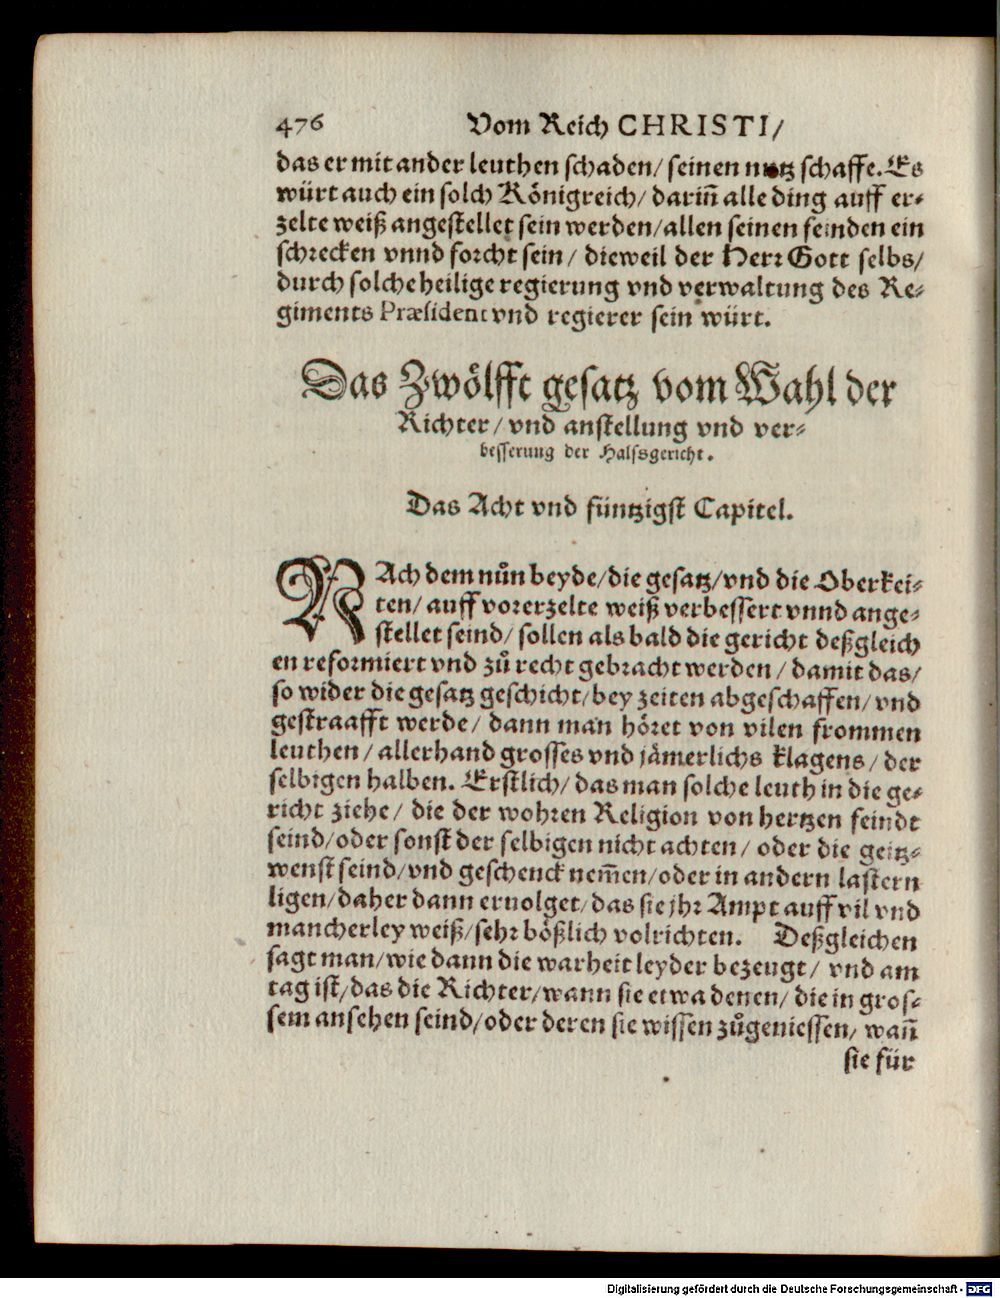 476 Vom Reich CHRISTI/
das er mit ander leuthen schaden/ seinen nutz schaffe. Es
würt auch ein solch Königreich/ dariñ alle ding auff er-
zelte weiß angestellet sein werden/ allen seinen feinden ein
schrecken vnnd forcht sein/ dieweil der Herr Gott selbs/
durch solche heilige regierung vnd verwaltung des Re-
giments Præsident vnd regierer sein würt.
Das Zwölfft gesatz vom Wahl der
Richter/ vnd anstellung vnd ver-
besserung der Halsgericht.
Das Acht vnd füntzigst Capitel.
NAch dem nůn beyde/ die gesatz/ vnd die Oberkei-
ten/ auff vorerzelte weiß verbessert vnnd ange-
stellet seind/ sollen als bald die gericht deßgleich
en reformiert vnd zů recht gebracht werden/ damit das/
so wider die gesatz geschicht/ bey zeiten abgeschaffen/ vnd
gestraafft werde/ dann man höret von vilen frommen
leuthen/ allerhand grosses vnd jämerlichs klagens/ der
selbigen halben. Erstlich/ das man solche leuth in die ge-
richt ziehe/ die der wohren Religion von hertzen feindt
seind/ oder sonst der selbigen nicht achten/ oder die geitz-
wenst seind/ vnd geschenck nem̃en/ oder in andern lastern
ligen/ daher dann eruolget/ das sie jhr Ampt auff vil vnd
mancherley weiß/ sehr bößlich volrichten. Deßgleichen
sagt man/ wie dann die warheit leyder bezeugt/ vnd am
tag ist/ das die Richter/ wann sie etwa denen/ die in gros-
sem ansehen seind/ oder deren sie wissen zůgeniessen/ wañ
sie für
Digitalisierung gefördert durch die Deutsche Forschungsgemeinschaft - DFG